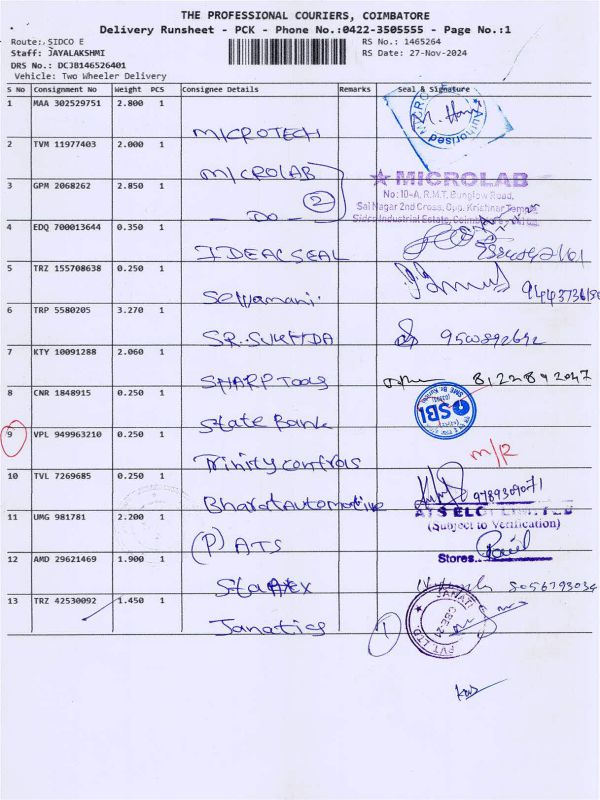 THE PROFESSIONAL COURIERS, COIMBATORE
Delivery Runsheet - PCK - Phone No.:0422-3505555 - Page No.:1
Route: SIDCO E RS No.: 1465264
Staff: JAYALAKSHMI RS Date: 27-Nov-2024
DRS No.: DCJB146526401
Vehicle: Two Wheeler Delivery
S No Consignment No Weight PCS Consignee Details Remarks Seal & Signature
1 MAA 302529751 2.800 1 MICROTECH
Authorised
2 TVM 11977403 2.000 1 MICROLAB
MICROLAB
No: 10-A, R.M.T. Bunglow Road,
Sai Nagar 2nd Cross, Opp. Krishnar Temple
Sidco Industrial Estate,
3 GPM 2068262 2.850 1 - DO - 2
4 EDQ 700013644 0.350 1 IDEAL SEAL
5 TRZ 155708638 0.250 1 Selvamani
6 TRP 5580205 3.270 1 SR. SUKHDA 9500892692
7 KTY 10091288 2.060 1 SHARP Tools 8122892047
8 CNR 1848915 0.250 1 State Bank
SBI
9 VPL 949963210 0.250 1 Trinity controls M/R
10 TVL 7269685 0.250 1 Bharat Automotive 9789309071
11 UMG 981781 2.200 1 (P) ATS
(Subject to Verification)
Stores
12 AMD 29621469 1.900 1
13 TRZ 42530092 1.450 1 Janatics 1
PVT LTD